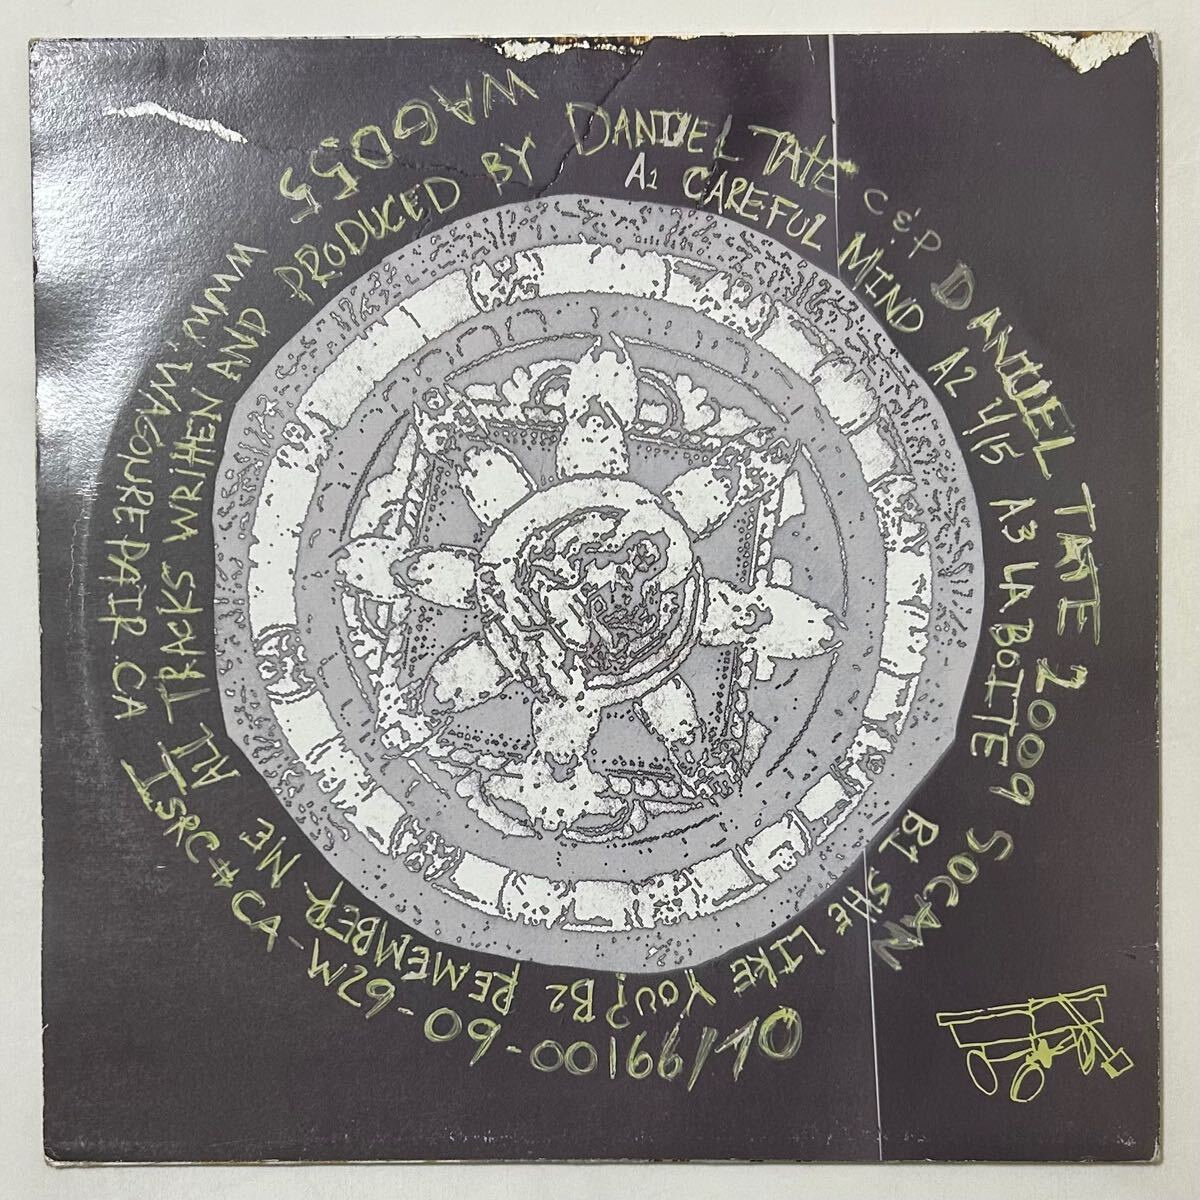 WAG055
ALL TRACKS WRITTEN AND PRODUCED BY DANIEL TATE
C & P DANIEL TATE 2009 SOCAN
A1 CAREFUL MIND A2 4/5 A3 LA BOITE
B1 SHE LIKE YOU? B2 REMEMBER ME
ISRC# CA-WZ9-09-00166/70
WWW.WAGONREPAIR.CA